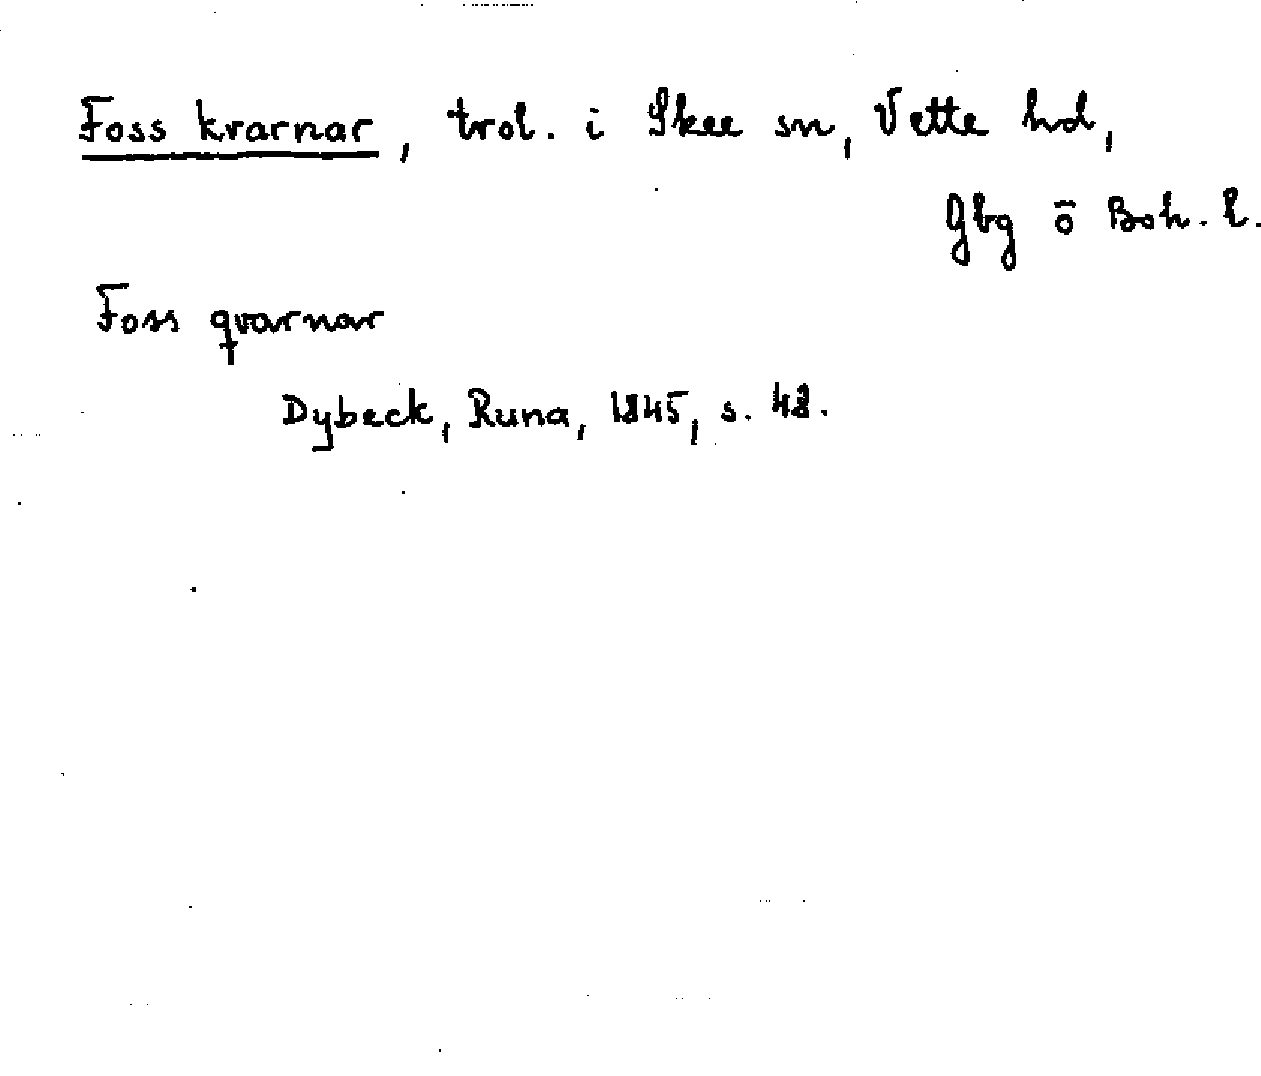 Foss kvarnar, trol. i Skee sn, Vette hd,
Gbg ō Boh. l.
Foss qvarnar
Dybeck, Runa, 1845, s. 48.